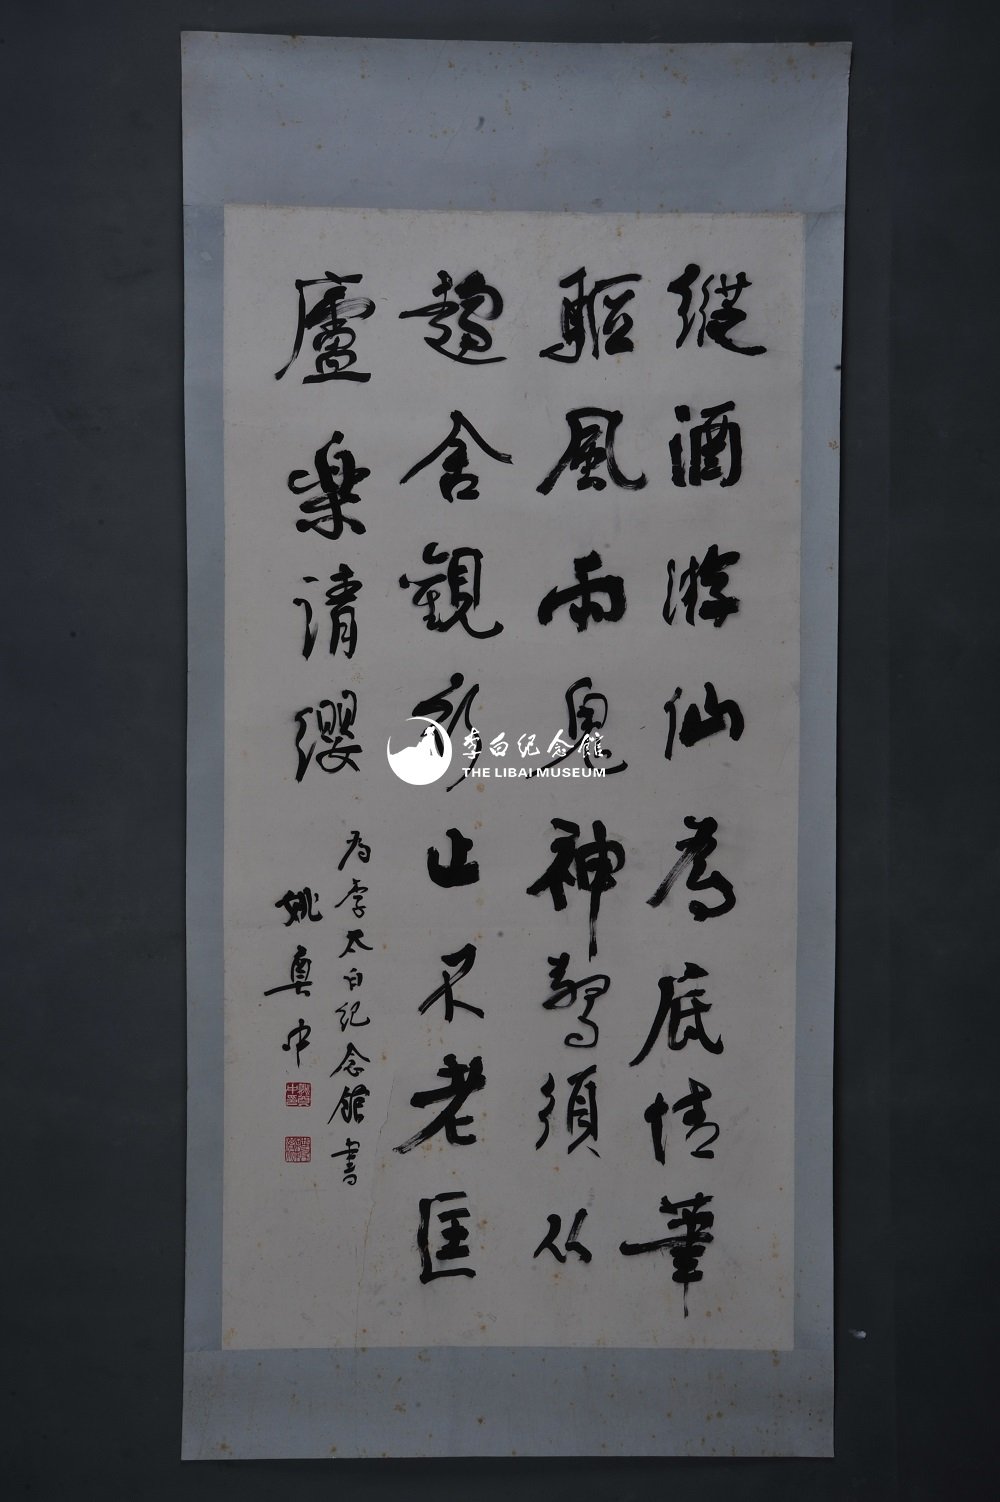 縱酒游仙為底情筆
驅風雨鬼神驚須从
趨舍觀行止不老匡
廬樂請纓
為李太白纪念館書
姚奠中
李白纪念館
THE LIBAI MUSEUM